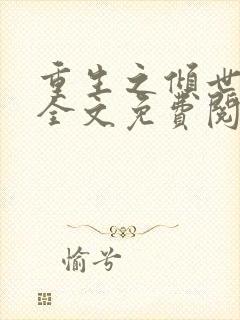 重生之傾世
全文免費閱
愉兮